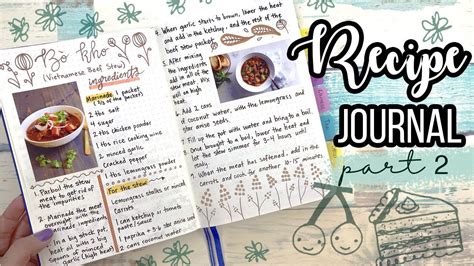 Bò kho
(Vietnamese Beef Stew)
ingredients
Marinade 1 packet
(2/3 of the packet)
2 tbs salt
4 sugar
2 tbs chicken powder
1 tbs rice cooking wine
2 tbs garlic
Cracked pepper
1 tbs lemongrass powder
1. Parboil the stew
meat to get rid of
the impurities
2. Marinade the meat
overnight with the
marinade ingredients
3. In a big stock pot,
heat oil with 2 big
spoons of minced
garlic (high heat)
For the stew
Lemongrass stalks
Carrots
1 can ketchup
1 paprika
2 cans coconut water
4. When garlic starts to brown, lower the heat
and add in the ketchup, and the rest of the
beef stew packet
5. After mixing
the ingredients
all of the
MIX
6. Add 2 cans
of coconut water, with the lemongrass and
star anise seeds.
7. Fill up the pot with water and bring to a boil
8. Once brought to a boil, lower the heat
and let the stew simmer for 3-4 hours until
9. When the meat has softened, add in the
carrots and cook for another 10-15 minutes
Recipe
JOURNAL
part 2